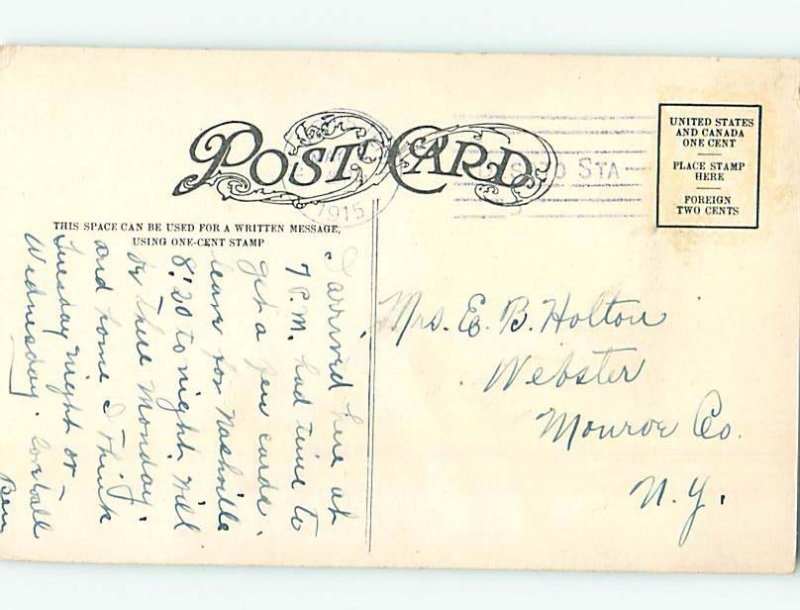 POST CARD
1915
STA
UNITED STATES
AND CANADA
ONE CENT
PLACE STAMP
HERE
FOREIGN
TWO CENTS
THIS SPACE CAN BE USED FOR A WRITTEN MESSAGE,
USING ONE-CENT STAMP
I arrived here at
7 P.M. had time to
get a few cards.
leave for Nashville
8:20 to night will
be there Monday.
and home I think
Tuesday night or
Wednesday. love to all
Ben
Mrs. E. B. Holton
Webster
Monroe Co.
N. Y.